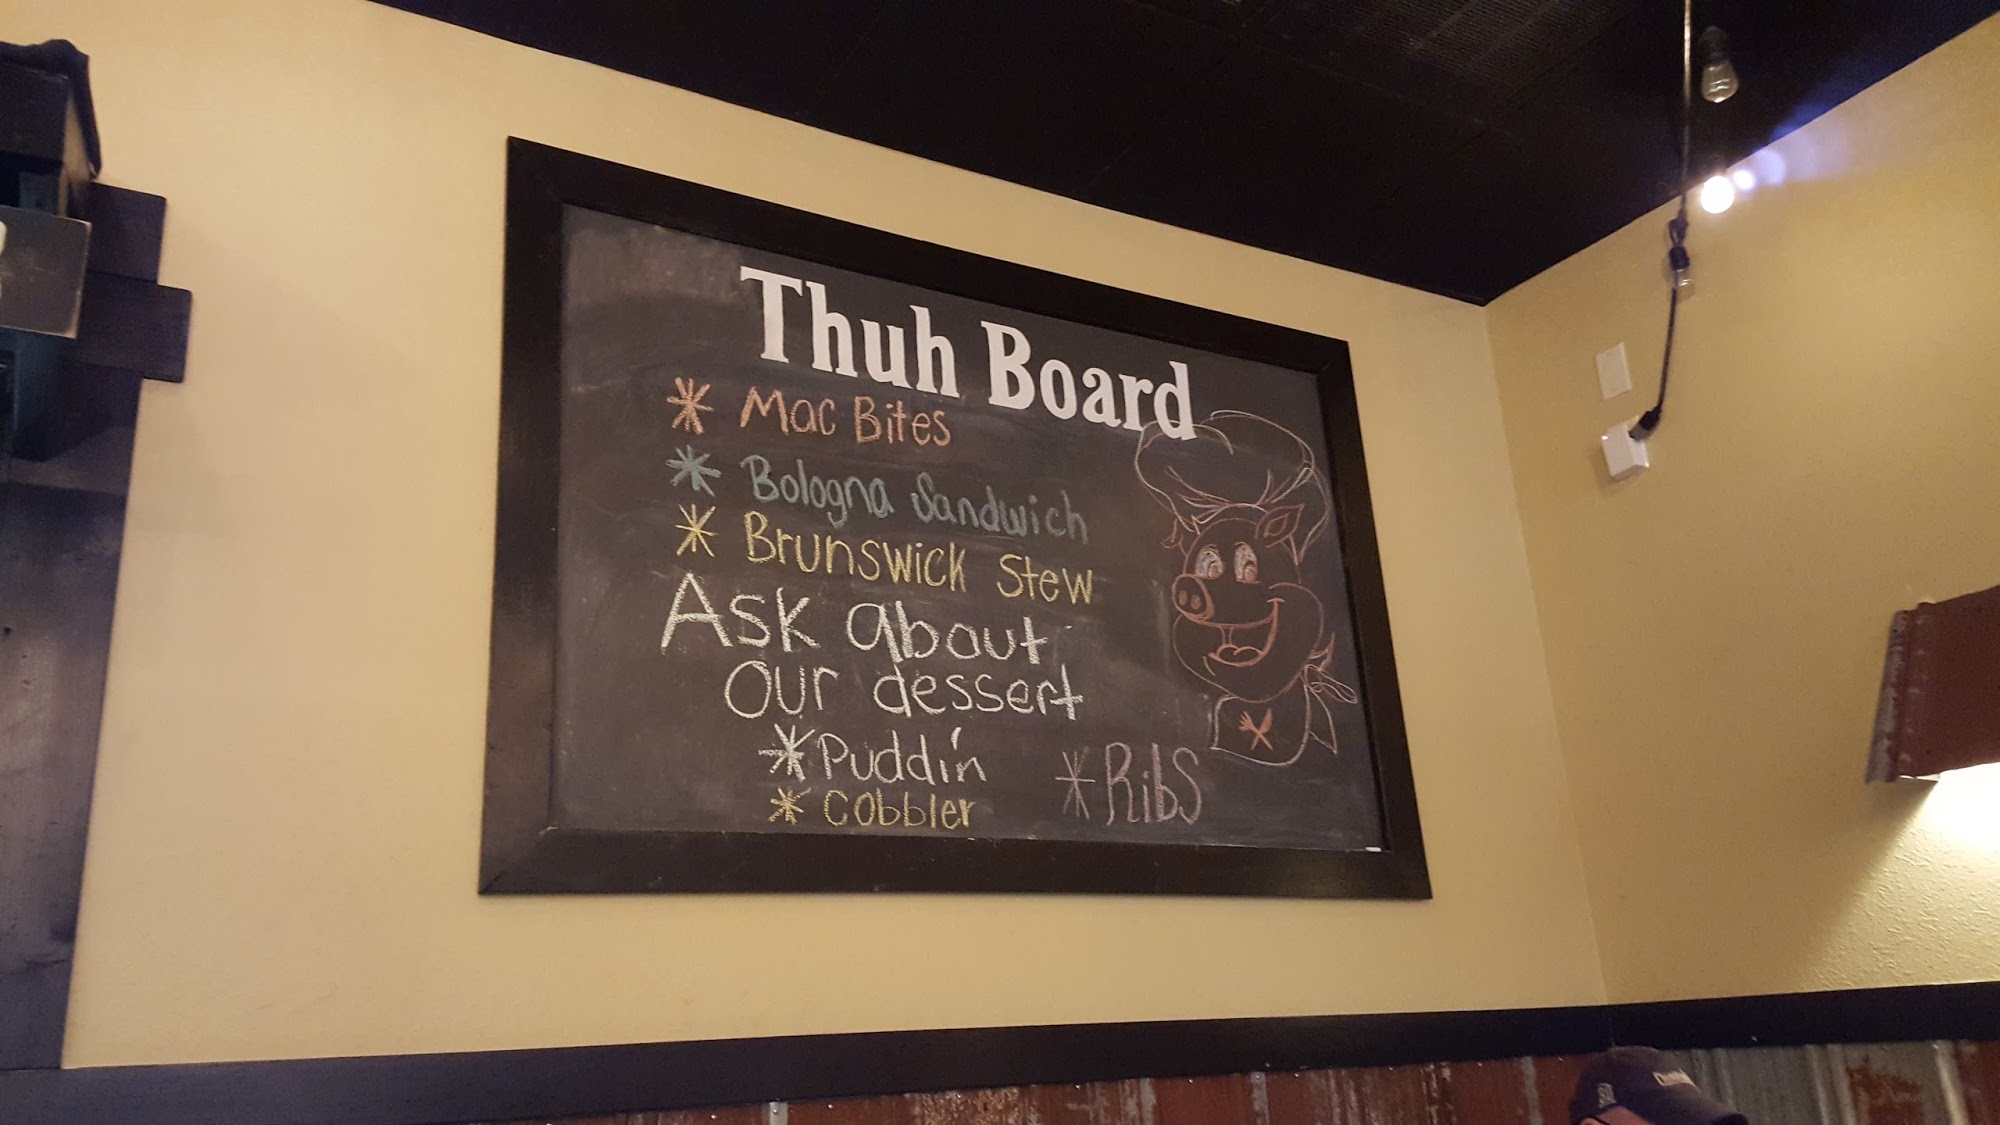 Thuh Board
* Mac Bites
* Bologna Sandwich
* Brunswick Stew
Ask about
our dessert
* Puddin'
* Cobbler
* Ribs